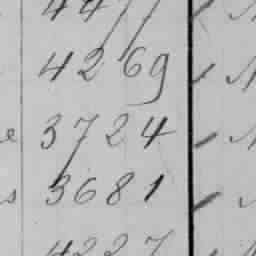 4477
4269
3724
3681
4227